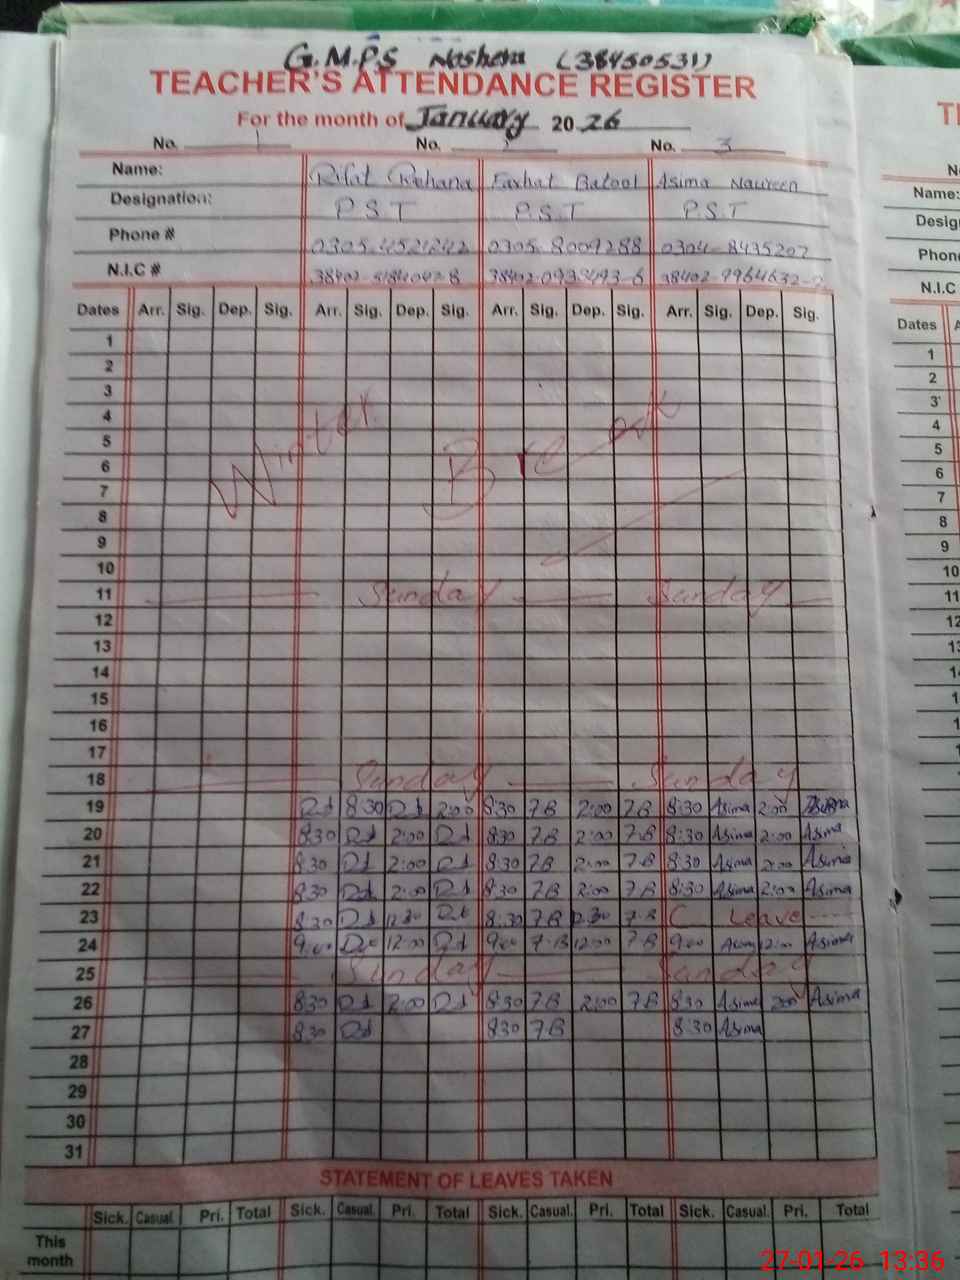 G.M.P.S Noshera (38450531)
TEACHER'S ATTENDANCE REGISTER
For the month of January 2026
No. 1 No. 2 No. 3
Name: Rifat Rehana Farhat Batool Asima Naureen
Designation: P.S.T P.S.T P.S.T
Phone # 0305-4521242 0305-8009288 0304-8435207
N.I.C #
Dates Arr. Sig. Dep. Sig. Arr. Sig. Dep. Sig. Arr. Sig. Dep. Sig. Arr. Sig. Dep. Sig.
1
2
3
4
5
6
Winter Break
7
8
9
10
11 Sunday Sunday
12
13
14
15
16
17
18 Sunday Sunday
19 8:30 2:00 8:30 7B 2:00 7B 8:30 Asima 2:00 Asima
20 8:30 2:00 8:30 7B 2:00 7B 8:30 Asima 2:00 Asima
21 8:30 2:00 8:30 7B 2:00 7B 8:30 Asima 2:00 Asima
22 8:30 2:00 8:30 7B 2:00 7B 8:30 Asima 2:00 Asima
23 8:30 12:30 8:30 7B 12:30 7-B C Leave
24 9:00 12:00 9:00 7-B 12:00 7B 9:00 Asima 12:00 Asima
25 Sunday Sunday
26 8:30 2:00 8:30 7B 2:00 7B 8:30 Asima 2:00 Asima
27 8:30 8:30 7B 8:30 Asima
28
29
30
31
STATEMENT OF LEAVES TAKEN
Sick. Casual. Pri. Total Sick. Casual. Pri. Total Sick. Casual. Pri. Total Sick. Casual. Pri. Total
This
month
Name:
Phone
N.I.C
Dates
1
2
3
4
5
6
7
8
9
10
11
12
27-01-26 13:36